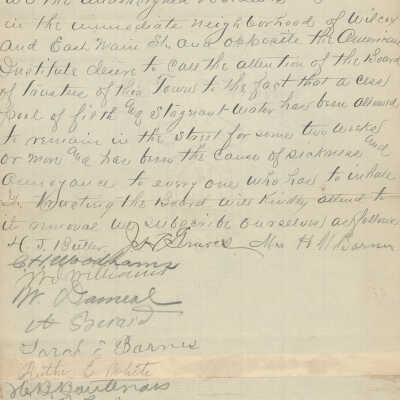 We the undersigned
in the immediate neighborhood of Wilcox
and East Main Sts and opposite the American
Institute desire to call the attention of the Board
of Trustees of this Town to the fact that a cess
pool of filth and Stagnant Water has been allowed
to remain in the street for some two weeks
or more and has been the cause of sickness and
annoyance to every one who has to inhale
it. Trusting the Board will kindly attend to
it removal we subscribe ourselves as follows
H. J. Butler J. A. Graves Mrs H W Barner
C H Woodhams
W
A Sherard
Sarah E Barnes
E White
H. B.